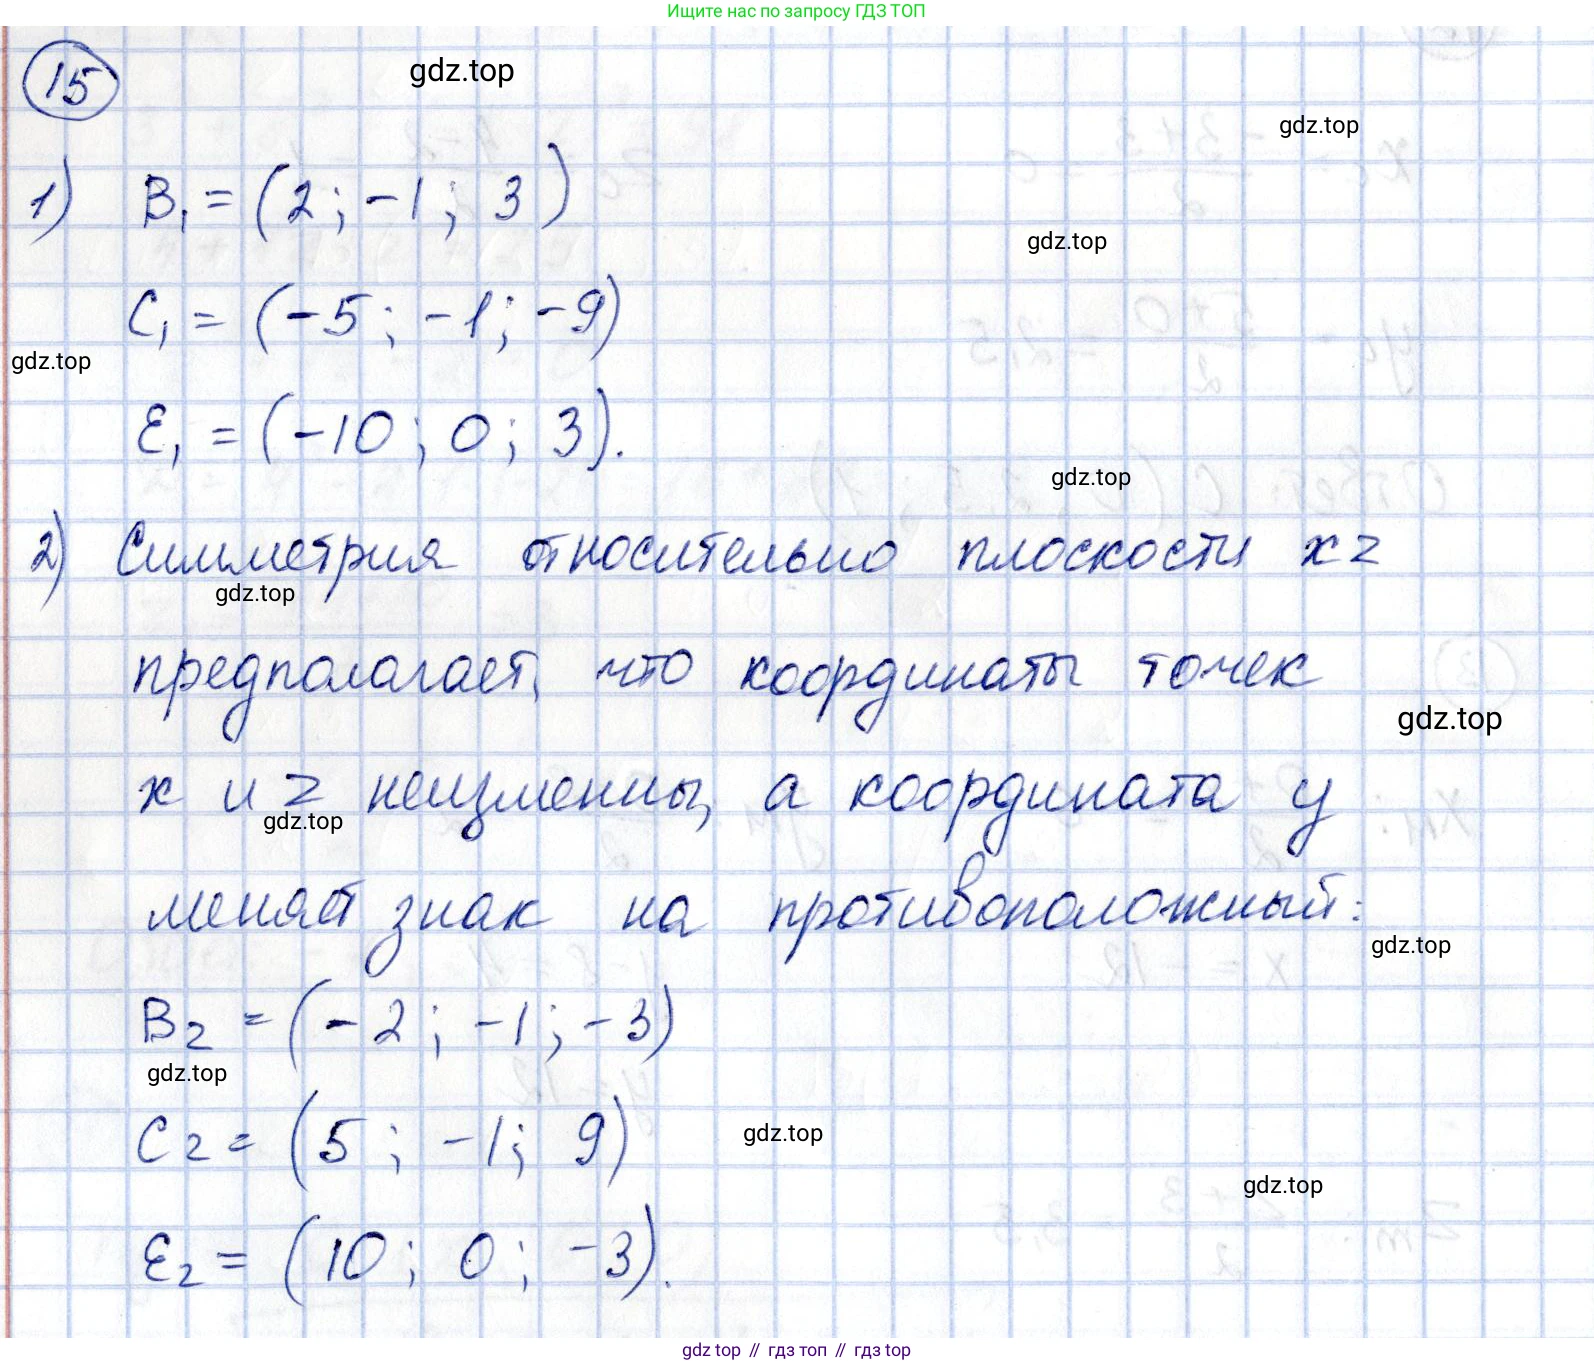 Ищите нас по запросу ГДЗ ТОП
15
gdz.top
gdz.top
1) B₁ = (2; -1; 3)
gdz.top
C₁ = (-5; -1; -9)
gdz.top
E₁ = (-10; 0; 3).
gdz.top
2) Симметрия относительно плоскости xz
gdz.top
предполагает, что координаты точек
gdz.top
x и z неизменны, а координата y
gdz.top
меняет знак на противоположный:
gdz.top
B₂ = (-2; -1; -3)
gdz.top
C₂ = (5; -1; 9)
gdz.top
gdz.top
E₂ = (10; 0; -3).
gdz top // гдз топ // гдз top